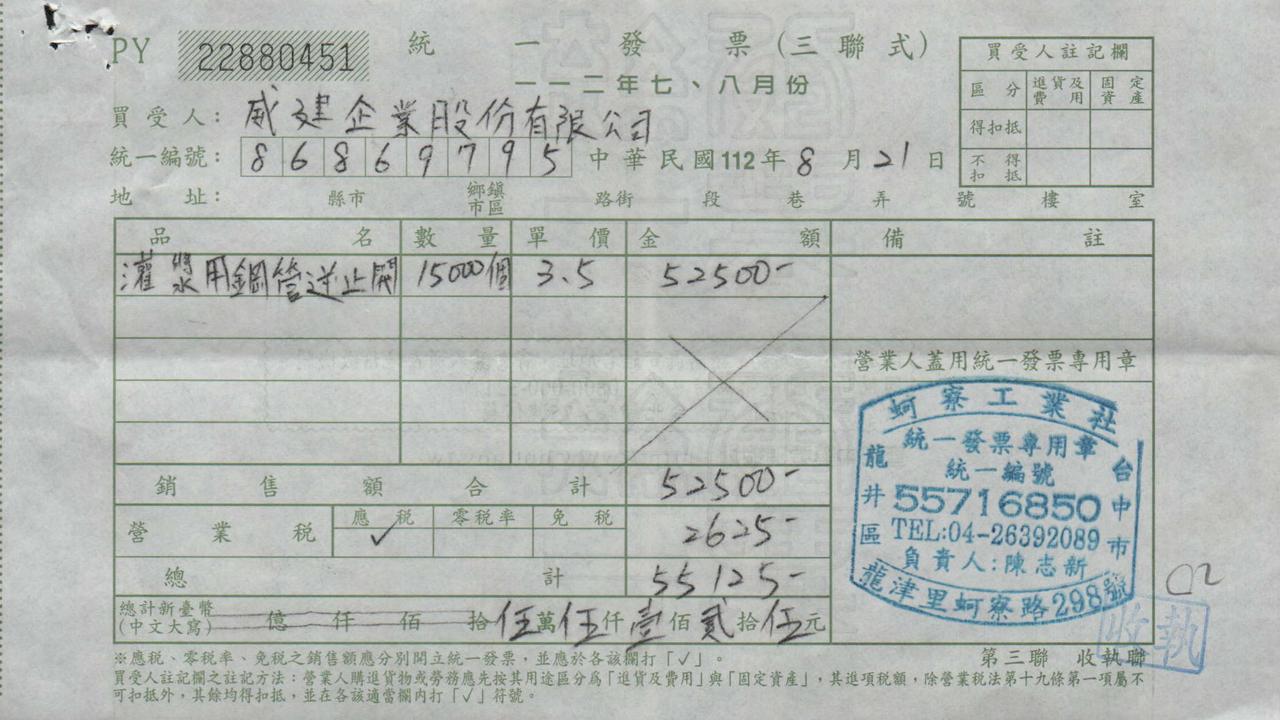 PY 22880451 統一發票(三聯式)
一一二年七、八月份
買受人註記欄
區分 進貨及費用 固定資產
得扣抵
不得扣抵
買受人：威建企業股份有限公司
統一編號：86869795 中華民國112年8月21日
地址： 縣市 鄉鎮市區 路街 段 巷 弄 號 樓 室
品名 數量 單價 金額 備註
灌漿用鋼管逆止閥 15000個 3.5 52500-
營業人蓋用統一發票專用章
銷售額合計 52500-
營業稅 應稅 零稅率 免稅 2625-
✓
總計 55125-
總計新臺幣(中文大寫) 億仟佰拾伍萬伍仟壹佰貳拾伍元
蚵寮工業社
統一發票專用章
統一編號
55716850
TEL:04-26392089
負責人:陳志新
台中市
龍井區
龍津里蚵寮路298號
02
收執
第三聯 收執聯
※應稅、零稅率、免稅之銷售額應分別開立統一發票，並應於各該欄打「✓」。
買受人註記欄之註記方法：營業人購進貨物或勞務應先按其用途區分為「進貨及費用」與「固定資產」，其進項稅額，除營業稅法第十九條第一項屬不
可扣抵外，其餘均得扣抵，並在各該適當欄內打「✓」符號。